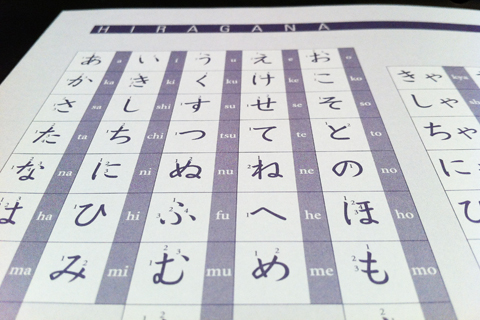 HIRAGANA
あ a い i う u え e お o
か ka き ki く ku け ke こ ko きゃ kya
さ sa し shi す su せ se そ so しゃ
た ta ち chi つ tsu て te と to ちゃ
な na に ni ぬ nu ね ne の no に
は ha ひ hi ふ fu へ he ほ ho ひ
ma み mi む mu め me も mo